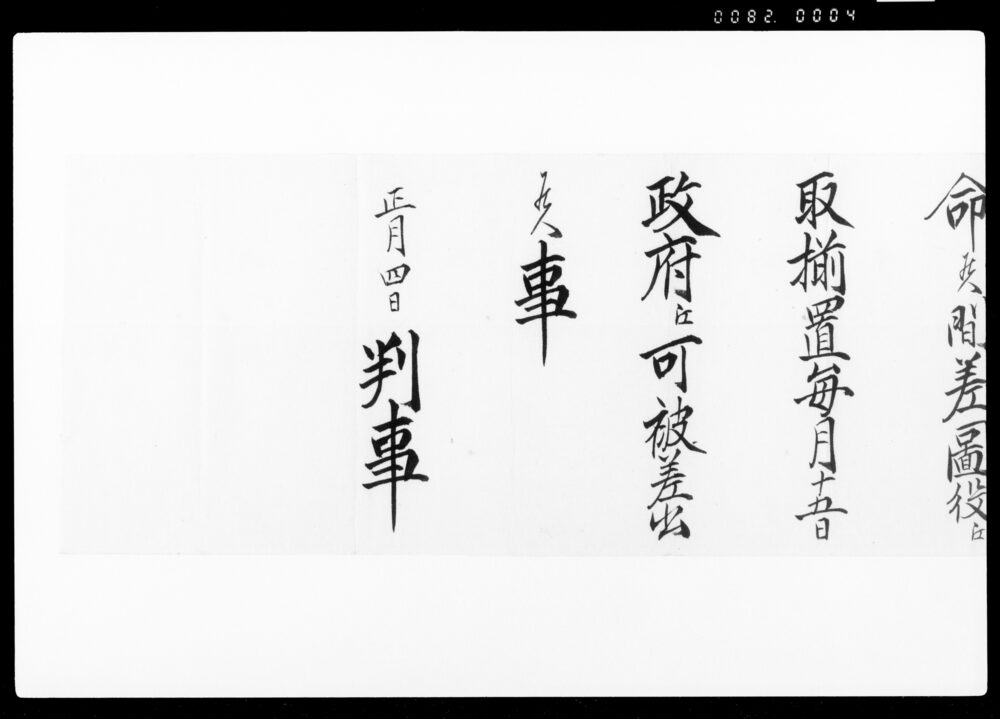 0082. 0004
命候間差圖役江
取揃置毎月十五日
政府江可被差出
候事
正月四日 判事